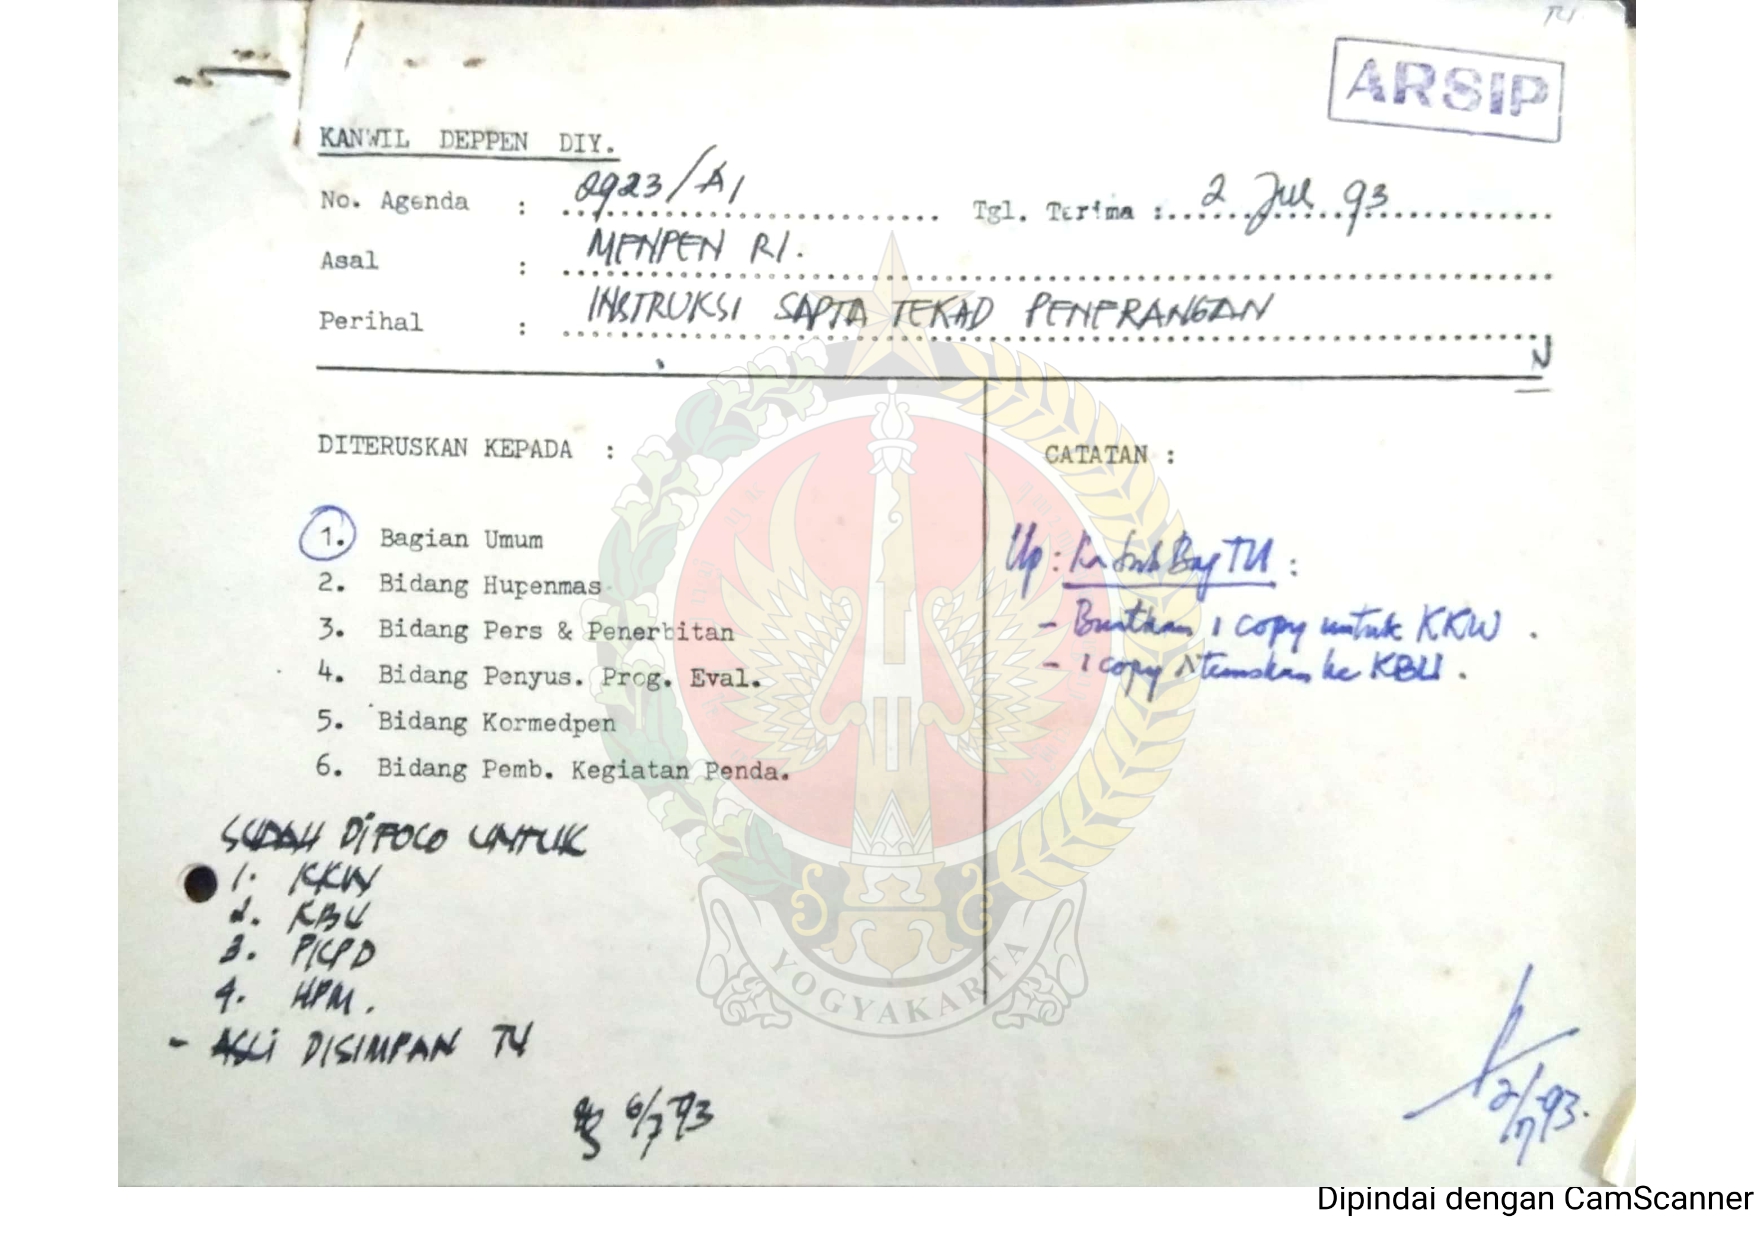 TU
ARSIP
KANWIL DEPPEN DIY.
No. Agenda : 2923/A1 Tgl. Terima : 2 Jul 93
Asal : MENPEN RI.
Perihal : INSTRUKSI SAPTA TEKAD PENERANGAN
N
DITERUSKAN KEPADA :
1. Bagian Umum
2. Bidang Hupenmas
3. Bidang Pers & Penerbitan
4. Bidang Penyus. Prog. Eval.
5. Bidang Kormedpen
6. Bidang Pemb. Kegiatan Penda.
CATATAN :
Up : Ka Sub Bag TU :
- Buatkan 1 copy untuk KKW .
- 1 copy diteruskan ke KBU .
SUDAH DIFOCO UNTUK
1. KKW
2. KBU
3. PKPD
4. HPM .
- ASLI DISIMPAN TU
6/7 93
2/7 93.
YOGYAKARTA
Dipindai dengan CamScanner